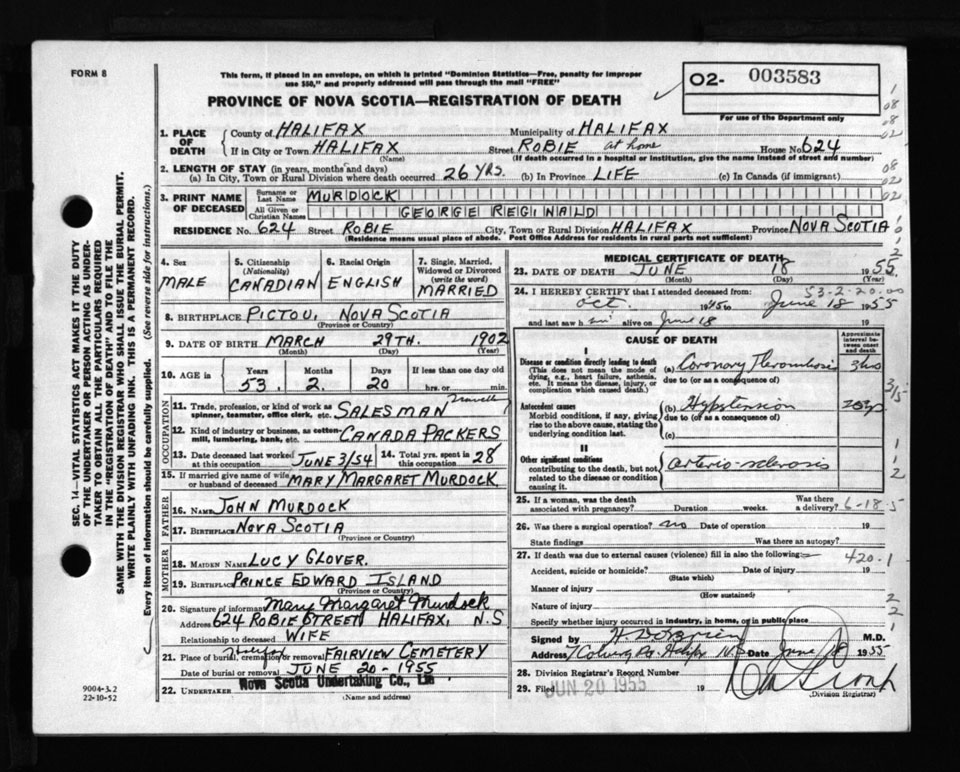 FORM 8
This form, if placed in an envelope, on which is printed "Dominion Statistics—Free, penalty for improper
use $50," and properly addressed will pass through the mail "FREE"
PROVINCE OF NOVA SCOTIA—REGISTRATION OF DEATH
02- 003583
For use of the Department only
1. PLACE OF DEATH
County of HALIFAX Municipality of HALIFAX
If in City or Town HALIFAX Street ROBIE at home House No. 624
(Name) (If death occurred in a hospital or institution, give the name instead of street and number)
2. LENGTH OF STAY (in years, months and days)
(a) In City, Town or Rural Division where death occurred 26 Yrs. (b) In Province LIFE (c) In Canada (if immigrant)
3. PRINT NAME OF DECEASED
Surname or Last Name MURDOCK
All Given or Christian Names GEORGE REGINALD
RESIDENCE No. 624 Street ROBIE City, Town or Rural Division HALIFAX Province NOVA SCOTIA
(Residence means usual place of abode. Post Office Address for residents in rural parts not sufficient)
4. Sex MALE
5. Citizenship (Nationality) CANADIAN
6. Racial Origin ENGLISH
7. Single, Married, Widowed or Divorced (write the word) MARRIED
8. BIRTHPLACE PICTOU, NOVA SCOTIA
(Province or Country)
9. DATE OF BIRTH MARCH 29TH. 1902
(Month) (Day) (Year)
10. AGE in Years 53. Months 2. Days 20 If less than one day old hrs. or min.
OCCUPATION
11. Trade, profession, or kind of work as spinner, teamster, office clerk, etc. SALESMAN
12. Kind of industry or business, as cotton-mill, lumbering, bank, etc. CANADA PACKERS
13. Date deceased last worked at this occupation JUNE 3/54 14. Total yrs. spent in this occupation 28
15. If married give name of wife or husband of deceased MARY MARGARET MURDOCK
FATHER
16. NAME JOHN MURDOCK
17. BIRTHPLACE NOVA SCOTIA
(Province or Country)
MOTHER
18. MAIDEN NAME LUCY GLOVER.
19. BIRTHPLACE PRINCE EDWARD ISLAND
(Province or Country)
20. Signature of informant Mary Margaret Murdock
Address 624 ROBIE STREET HALIFAX, N.S
Relationship to deceased WIFE
21. Place of burial, cremation or removal Halifax FAIRVIEW CEMETERY
Date of burial or removal JUNE 20-1955
22. UNDERTAKER Nova Scotia Undertaking Co., Ltd
(Name and Address)
MEDICAL CERTIFICATE OF DEATH
23. DATE OF DEATH JUNE 18 1955
(Month) (Day)
53-2-20.00
24. I HEREBY CERTIFY that I attended deceased from:
Oct. June 18 1955
and last saw him alive on June 18
CAUSE OF DEATH
Approximate interval between onset and death
I
Disease or condition directly leading to death
(This does not mean the mode of dying, e.g., heart failure, asthenia, etc. It means the disease, injury, or complication which caused death.)
(a) Coronary Thrombosis
due to (or as a consequence of)
Antecedent causes
Morbid conditions, if any, giving rise to the above cause, stating the underlying condition last.
(b) Hypertension
due to (or as a consequence of)
(c)
II
Other significant conditions
contributing to the death, but not related to the disease or condition causing it.
arterio-sclerosis
25. If a woman, was the death associated with pregnancy? Duration weeks. Was there a delivery?
6-18-5
26. Was there a surgical operation? no Date of operation 19
State findings Was there an autopsy?
27. If death was due to external causes (violence) fill in also the following:—
420-1
Accident, suicide or homicide? Date of injury 19
(State which)
Manner of injury
(How sustained)
Nature of injury
Specify whether injury occurred in industry, in home, or in public place
Signed by M.D.
Address 7 Coburg Rd. Halifax N.S. Date June 18 1955
28. Division Registrar's Record Number
29. Filed JUN 20 1955 19
(Division Registrar)
SEC. 14—VITAL STATISTICS ACT MAKES IT THE DUTY
OF THE UNDERTAKER OR PERSON ACTING AS UNDER-
TAKER TO OBTAIN ALL THE PARTICULARS REQUIRED
IN THE "REGISTRATION OF DEATH" AND TO FILE THE
SAME WITH THE DIVISION REGISTRAR WHO SHALL ISSUE THE BURIAL PERMIT.
WRITE PLAINLY WITH UNFADING INK. THIS IS A PERMANENT RECORD.
Every item of information should be carefully supplied. (See reverse side for instructions.)
9004-3.2
22-10-52